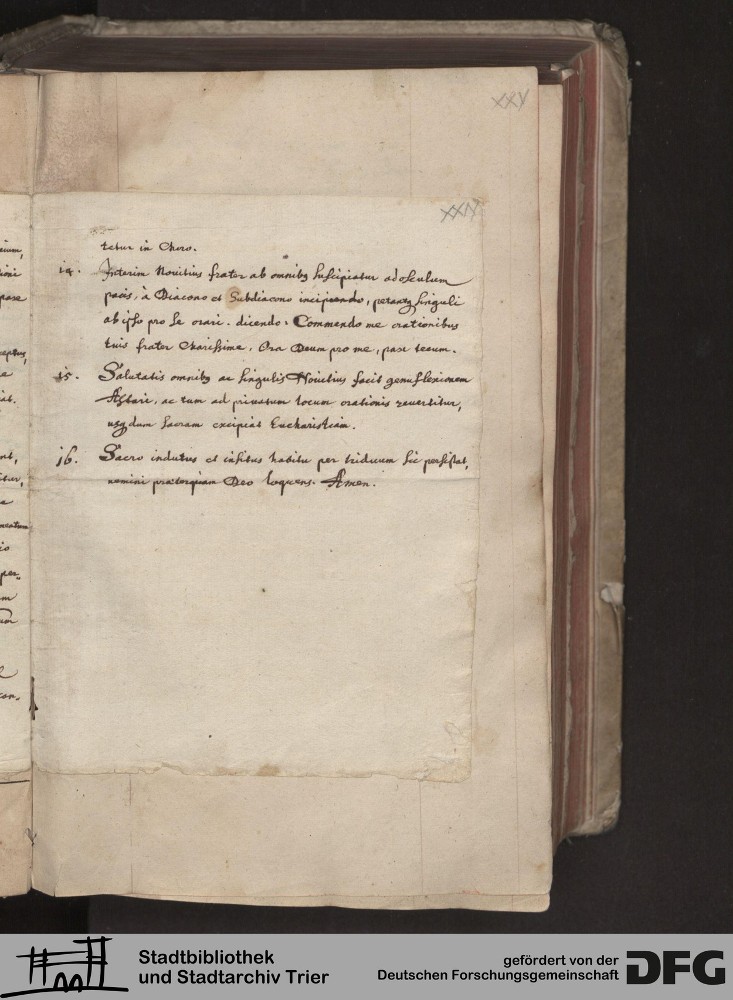 XXV
XXIV
tetur in Choro.
14. Interim Novitius frater ab omnibꝫ suscipiatur ad osculum
pacis, à Diacono et Subdiacono incipiendo, petantqꝫ singuli
ab ipso pro se orari. dicendo: Commendo me orationibus
tuis frater Charissime. Ora Deum pro me, pax tecum.
15. Salutatis omnibꝫ ac singulis Novitius facit genuflexionem
Altari, ac tum ad privatum locum orationis revertitur,
usqꝫ dum sacram excipiat Eucharistiam.
16. Sacro indutus et insitus habitu per triduum sic persistat,
nemini praeterquam Deo loquens. Amen.
Stadtbibliothek
und Stadtarchiv Trier
gefördert von der
Deutschen Forschungsgemeinschaft
DFG